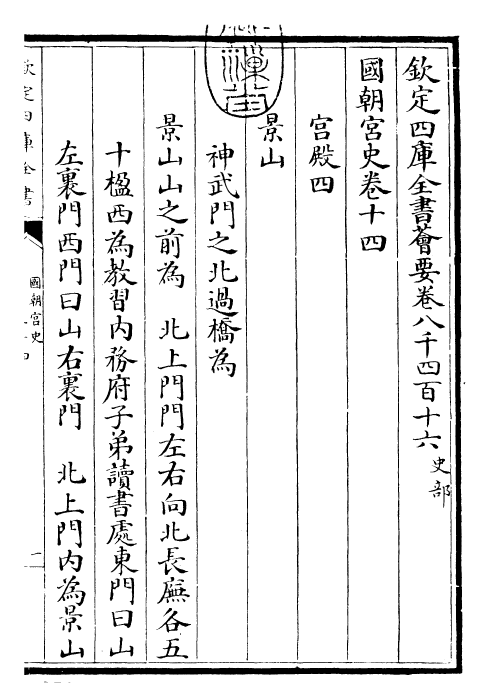 欽定四庫全書薈要卷八千四百十六史部
國朝宮史卷十四
宮殿四
景山
神武門之北過橋為
景山山之前為　北上門門左右向北長廡各五
十楹西為教習內務府子弟讀書處東門曰山
左裏門西門曰山右裏門　北上門內為景山
欽定四庫全書
國朝宮史